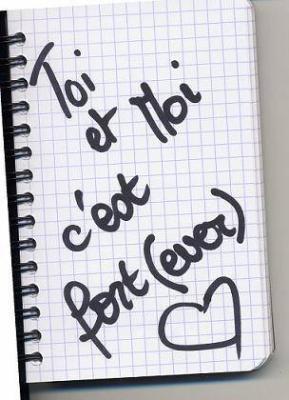 Toi
et Moi
c'est
fort(ever)